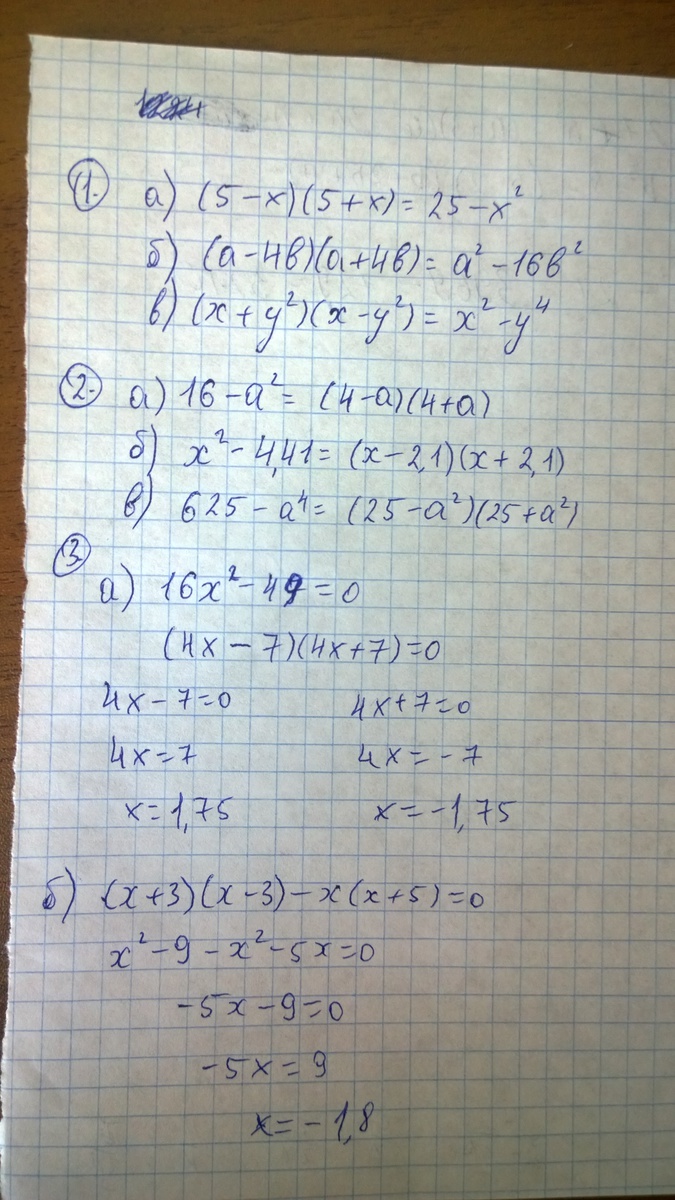 1. а) (5-x)(5+x)= 25-x²
б) (а-4в)(а+4в)= а²-16в²
в) (x+y²)(x-y²)= x²-y⁴
2. а) 16-а²= (4-а)(4+а)
б) x²-4,41= (x-2,1)(x+2,1)
в) 625-а⁴= (25-а²)(25+а²)
3. а) 16x²-49=0
(4x-7)(4x+7)=0
4x-7=0 4x+7=0
4x=7 4x=-7
x=1,75 x=-1,75
б) (x+3)(x-3)-x(x+5)=0
x²-9-x²-5x=0
-5x-9=0
-5x=9
x=-1,8